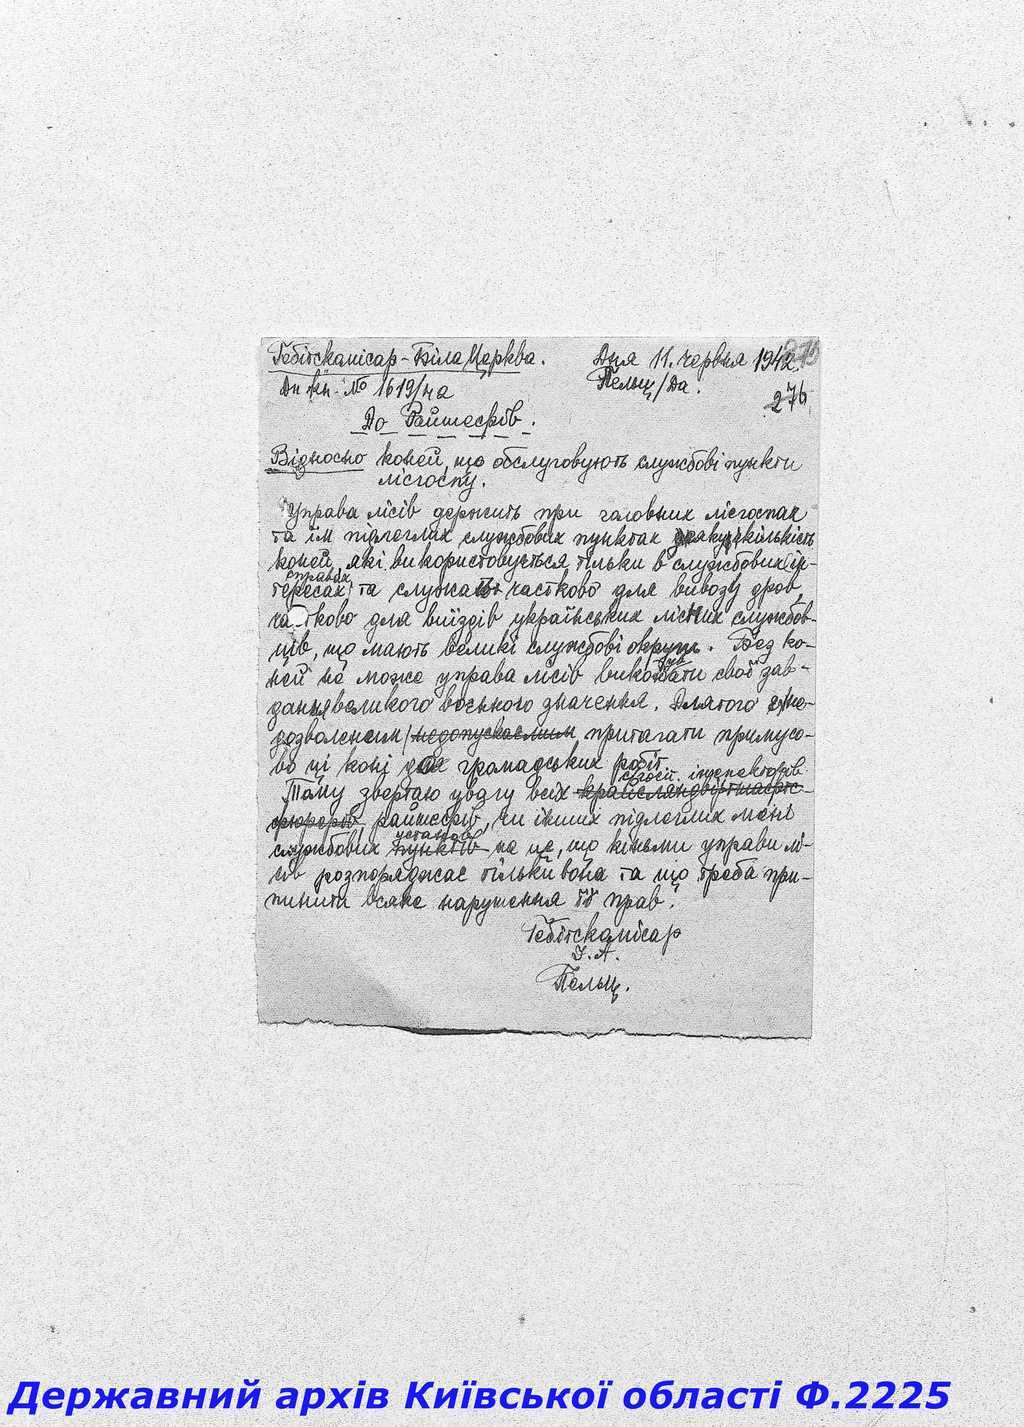 Гебітскомісар - Біла Церква. Дня 11. червня 1942.
Дн. кн. № 1619/42 Пельц/Да.
276
До Райшефів.
Відносно коней, що обслуговують службові пункти
лісгоспу.
Управа лісів держить при головних лісгоспах
та їм підлеглих службових пунктах яку кількість
коней, які використовується тільки в службових ін-
справах
тересах та служать частково для вивозу дров,
частково для виїздів українських лісних службов-
ців, що мають великі службові округи. Без ко-
ней не може управа лісів виконувати свої зав-
дання великого воєнного значення. Длятого
дозволеним /недопускаємим притягати примусо-
во ці коні для громадських робіт.
сгосп. інспекторів
Тому звертаю увагу всіх крайсляндвіртшафтс-
фюрерів, райшефів, чи інших підлеглих мені
установ
службових пунктів на це, що кіньми управи лі-
сів розпоряджає тільки вона та що треба при-
пинити всяке нарушення її прав.
Гебітскомісар
І. А.
Пельц.
Державний архів Київської області Ф.2225